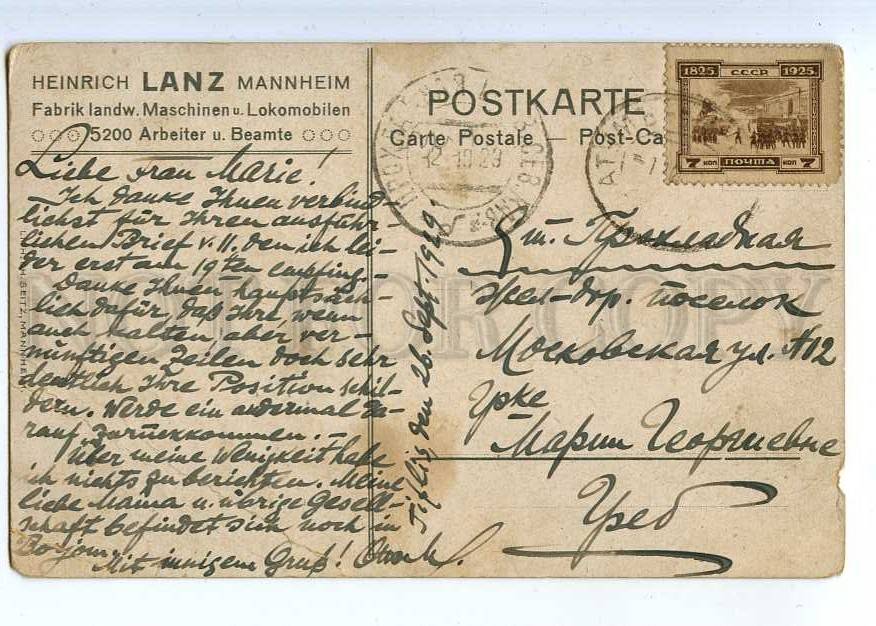 HEINRICH LANZ MANNHEIM
Fabrik landw. Maschinen u. Lokomobilen
5200 Arbeiter u. Beamte
Liebe Frau Marie!
Ich danke Ihnen verbind-
lichst für Ihren ausführ-
lichen Brief v. 11. den ich lei-
der erst am 19ten empfing. -
Danke Ihnen hauptsäch-
lich dafür, daß Ihre, wenn
auch kalten, aber ver-
nünftigen Zeilen doch sehr
deutlich Ihre Position schil-
dern. Werde ein andermal da-
rauf zurückkommen. -
Über meine Wenigkeit habe
ich nichts zu berichten. Meine
liebe Mama u. übrige Gesell-
schaft befindet sich noch in
Borjom.
Mit innigem Gruß!
Tiflis den 26. Sept. 1929
SEITZ, MANNHEIM
POSTKARTE
Carte Postale — Post-Ca
12 10 29
1825 СССР 1925
7 КОП ПОЧТА КОП 7
Ст. Прохладная
Жел-дор. поселок
Московская ул. №12
Марии Георгиевне
NOT FOR COPY